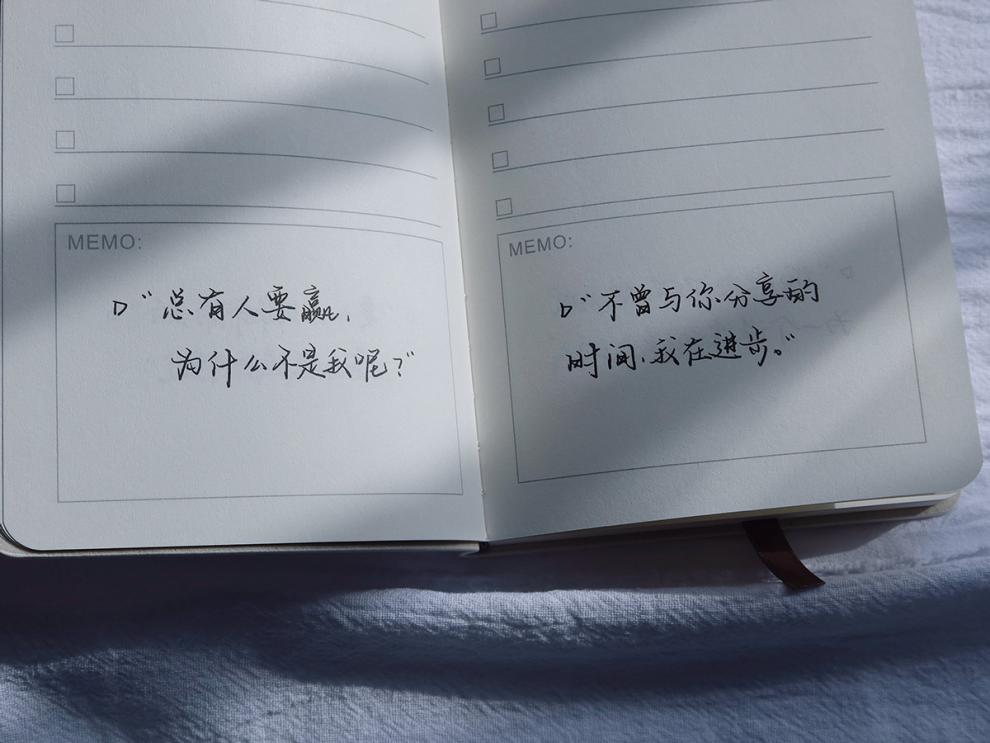 MEMO:
▷“总有人要赢，
为什么不是我呢？”
MEMO:
▷“不曾与你分享的
时间，我在进步。”